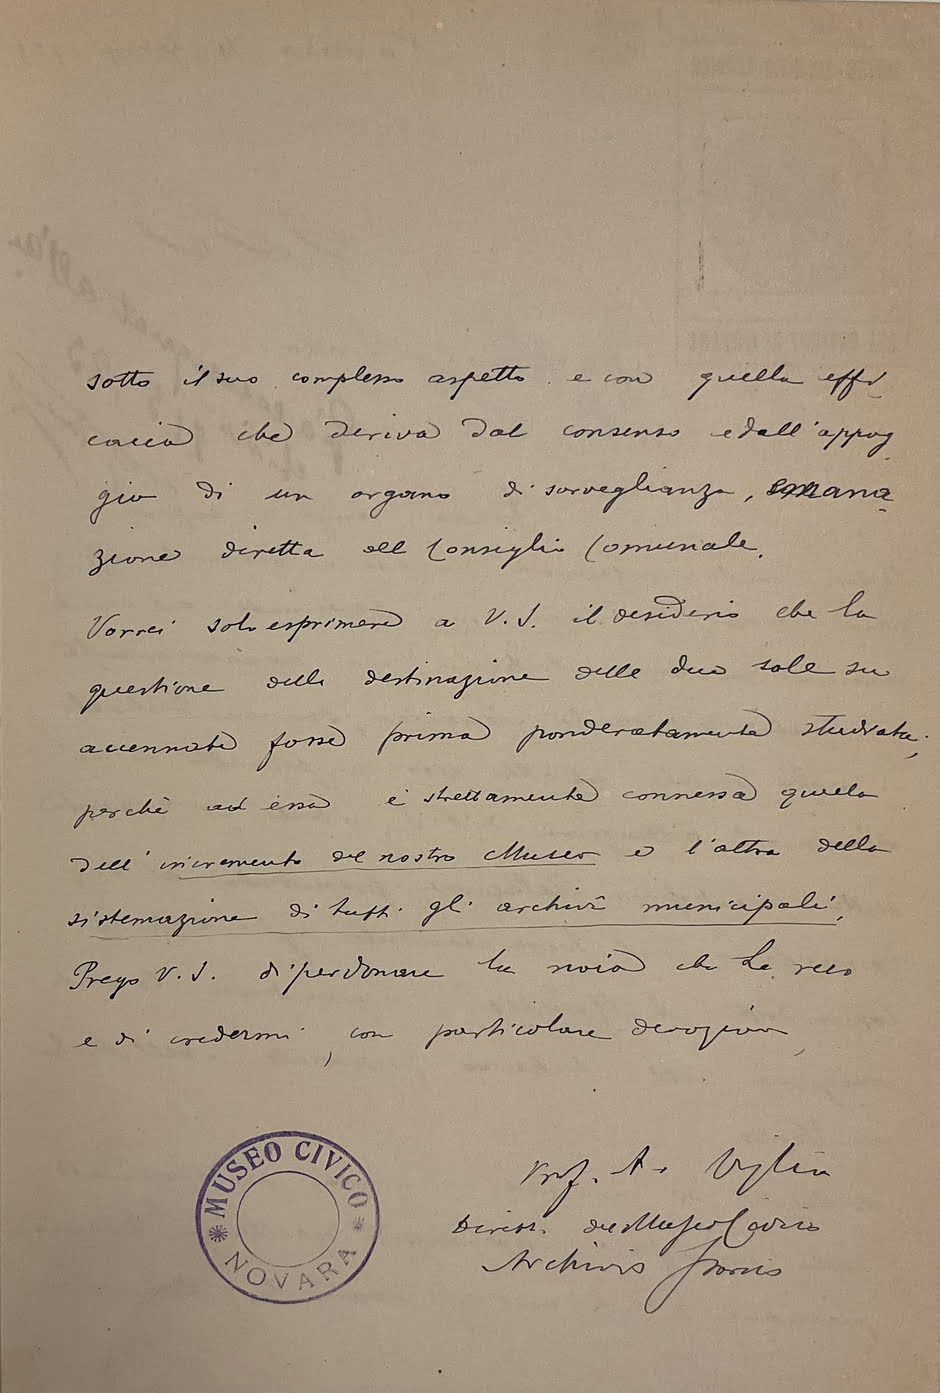 sotto il suo complesso aspetto e con quella effi
cacia che deriva dal consenso e dall'appog
gio di un organo di sorveglianza, emana
zione diretta del Consiglio Comunale.
Vorrei solo esprimere a V. S. il desiderio che la
questione della destinazione delle due sale su
accennate fosse prima ponderatamente studiata;
perchè ad essa è strettamente connessa quella
dell'incremento del nostro Museo e l'altra della
sistemazione di tutti gli archivi municipali.
Prego V. S. di perdonare la noia che Le reco
e di credermi, con particolare devozione,
Prof. A. Viglio
Dirett. del Museo Civico
Archivio Storico
MUSEO CIVICO
NOVARA